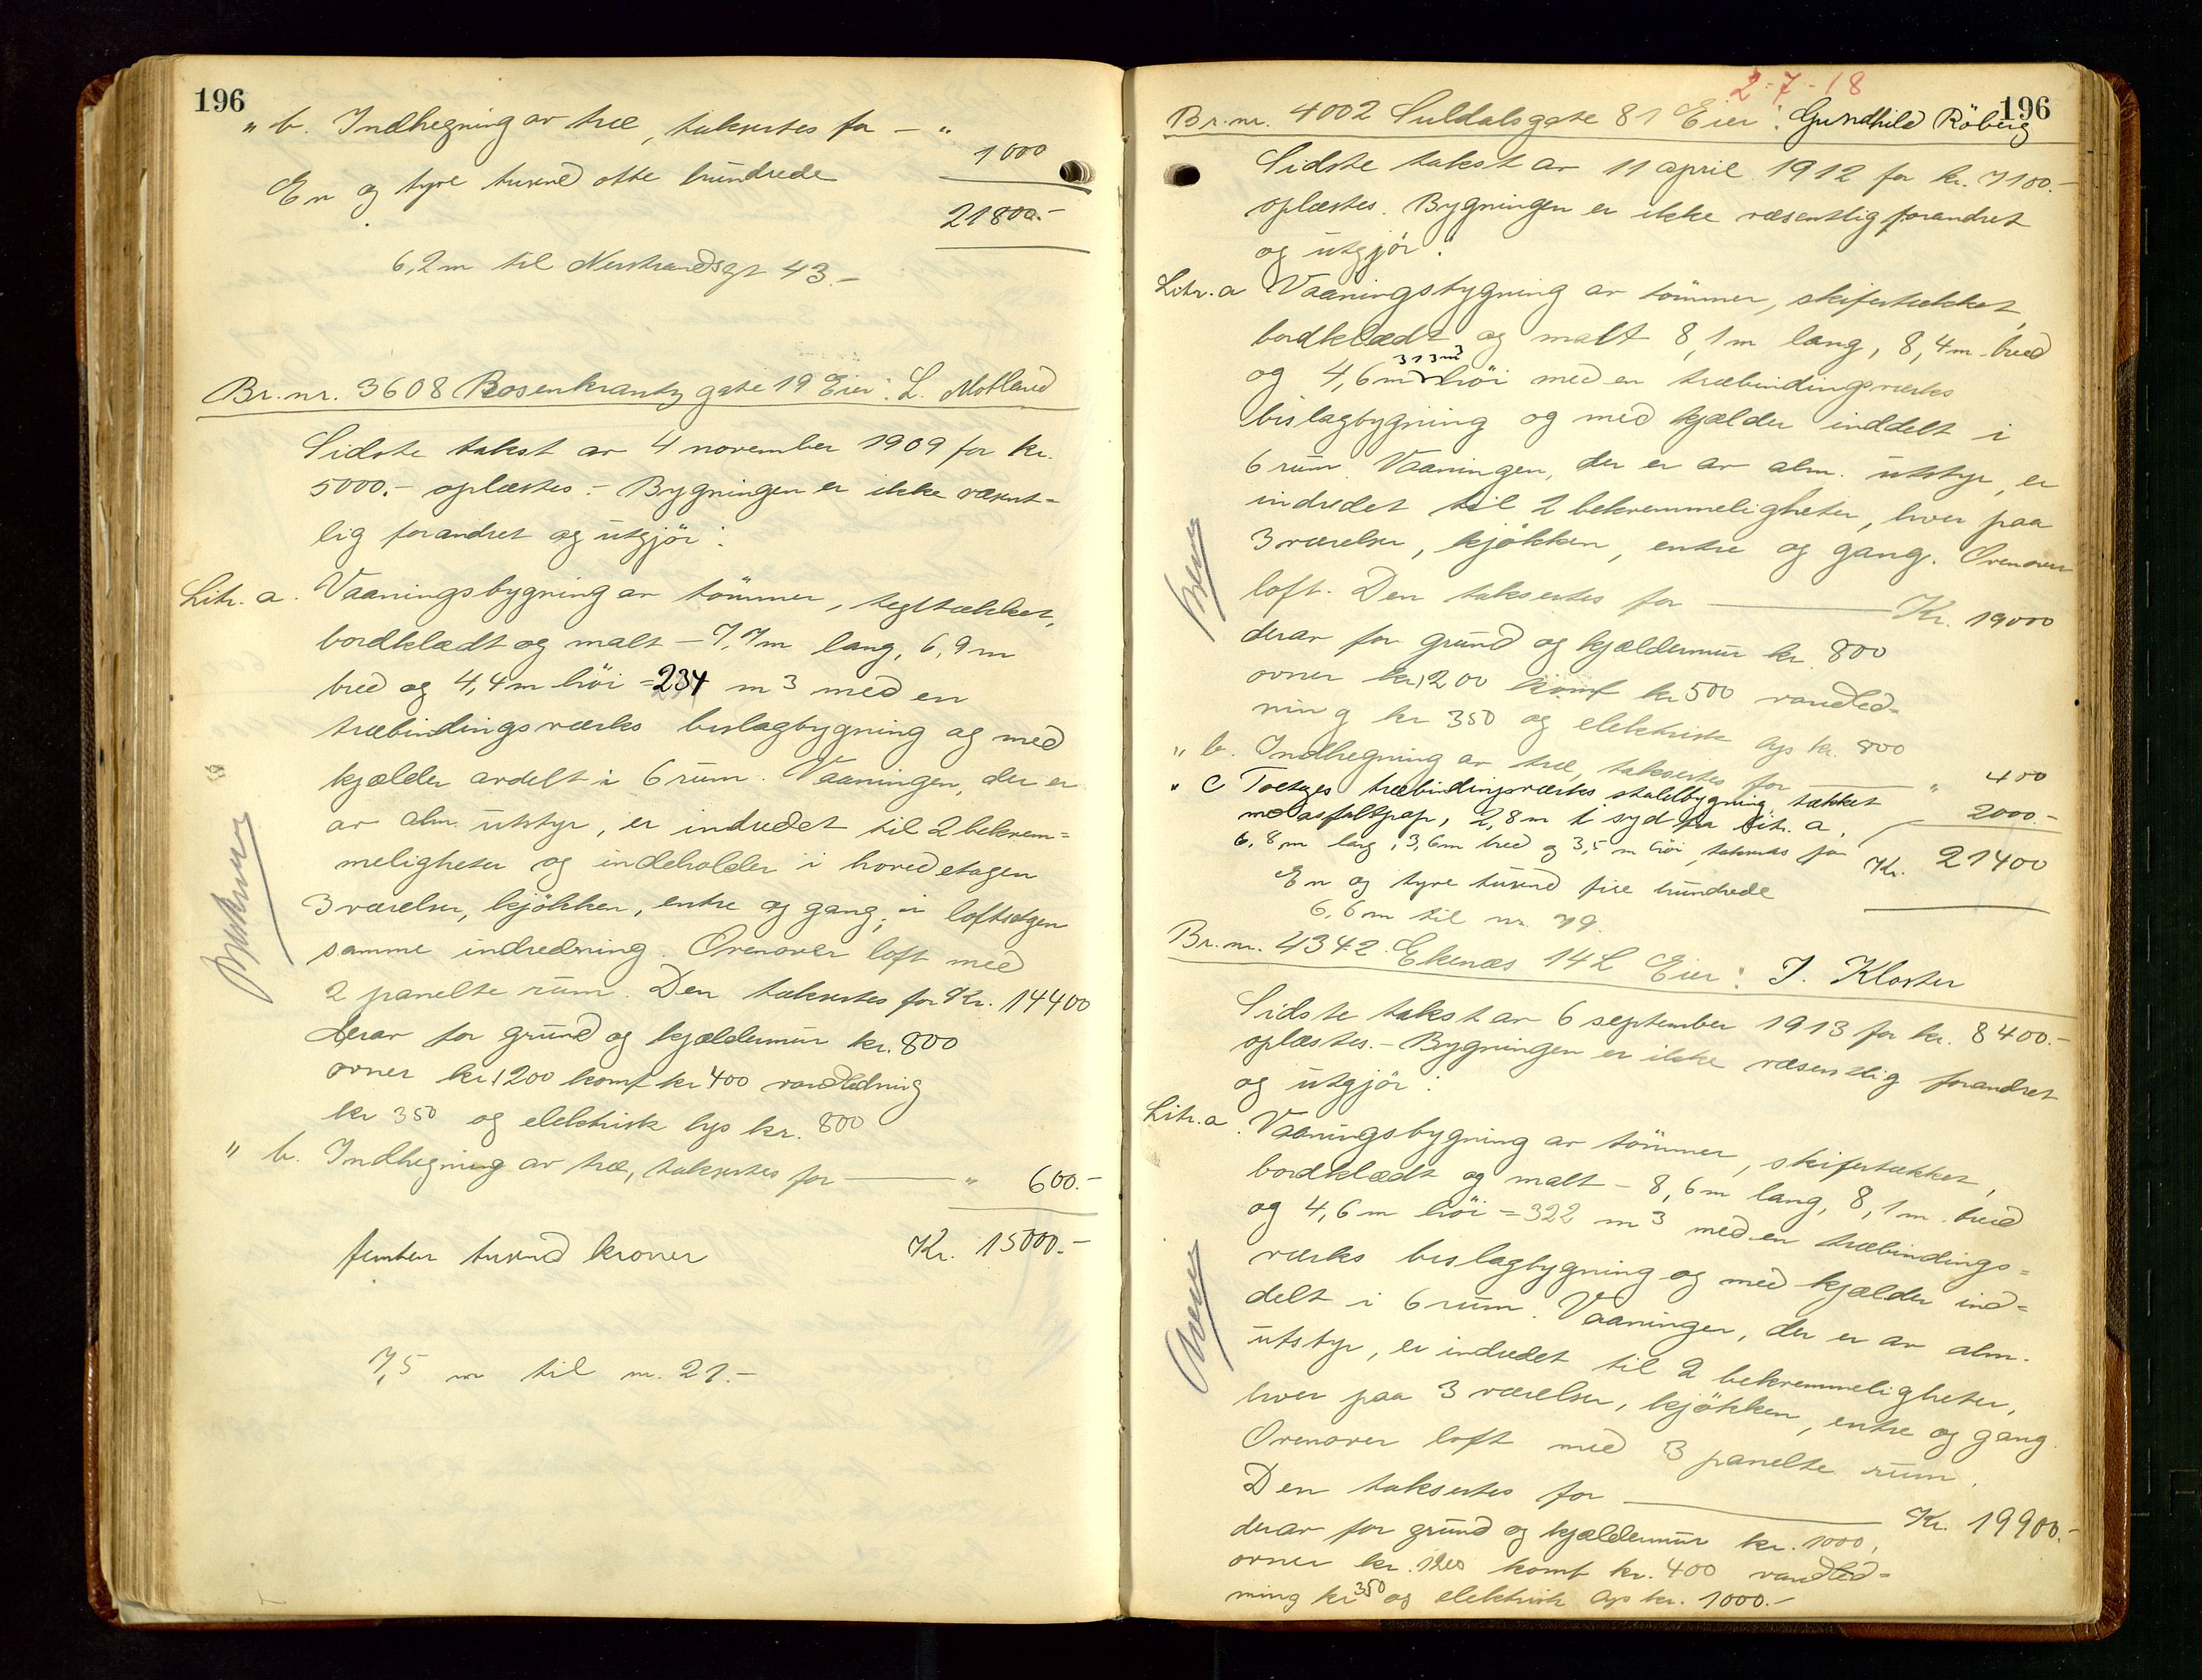 196
" b. Indhegning av træ, taksertes for — " 1000
En og tyve tusend otte hundrede 21800.-
6,2 m til Nerstrandsgt 43.-
Br. nr. 3608 Rosenkrantz gate 19 Eier: L. Motland
Sidste takst av 4 november 1909 for kr.
5000.- oplæstes.- Bygningen er ikke væsent-
lig forandret og utgjör:
Litr. a. Vaaningsbygning av tömmer, tegltækket,
bordklædt og malt - 7,7 m lang, 6,9 m
bred og 4,4 m höi = 234 m3 med en
træbindingsværks bislagbygning og med
kjælder avdelt i 6 rum. Vaaningen, der er
av alm. utstyr, er indredet til 2 bekvem-
meligheter og indeholder i hovedetagen
3 værelser, kjökken, entre og gang; i loftsetgen
samme indredning. Ovenover loft med
2 panelte rum. Den taksertes for Kr. 14400
derav for grund og kjældermur kr. 800
ovner kr 1200 komf kr 400 vandledning
kr 350 og elektrisk lys kr. 800
" b. Indhegning av træ, taksertes for — " 600.-
femten tusend kroner Kr. 15000.-
7,5 m til nr. 21.-
2-7-18
196
Br. nr. 4002 Suldalsgate 81 Eier: Gundhild Röberg
Sidste takst av 11 april 1912 for kr. 7100.-
oplæstes. Bygningen er ikke væsentlig forandret
og utgjör:
Litr. a Vaaningsbygning av tömmer, skifertækket,
bordklædt og malt 8,1 m lang, 8,4 m bred
313 m3
og 4,6 m höi med en træbindingsværks
bislagbygning og med kjælder inddelt i
6 rum. Vaaningen, der er av alm. utstyr, er
indredet til 2 bekvemmeligheter, hver paa
3 værelser, kjökken, entre og gang. Ovenover
loft. Den taksertes for — Kr. 19000
derav for grund og kjældermur kr. 800
ovner kr 1200 komf kr 500 vandled-
ning kr 350 og elektrisk lys kr. 800
" b. Indhegning av træ, taksertes for — " 400
" c Toetages træbindingsværks staldbygning tækket
med asfaltpap, 2,8 m i syd for litr. a, 2000.-
6,8 m lang, 3,6 m bred og 3,5 m höi, taksertes for
Kr. 21400
En og tyve tusend fire hundrede
6,6 m til nr. 79.
Br. nr. 4342 Ekenæs 14 L Eier: J. Kloster
Sidste takst av 6 september 1913 for kr. 8400.-
oplæstes.- Bygningen er ikke væsentlig forandret
og utgjör:
Litr. a. Vaaningsbygning av tömmer, skifertækket,
bordklædt og malt - 8,6 m lang, 8,1 m bred
og 4,6 m höi = 322 m3 med en træbindings-
værks bislagbygning og med kjælder ind-
delt i 6 rum. Vaaningen, der er av alm.
utstyr, er indredet til 2 bekvemmeligheter,
hver paa 3 værelser, kjökken, entre og gang.
Ovenover loft med 3 panelte rum.
Den taksertes for — Kr. 19900.-
derav for grund og kjældermur kr. 1000,
ovner kr. 1200 komf kr. 400 vandled-
ning kr 350 og elektrisk lys kr. 1000.-